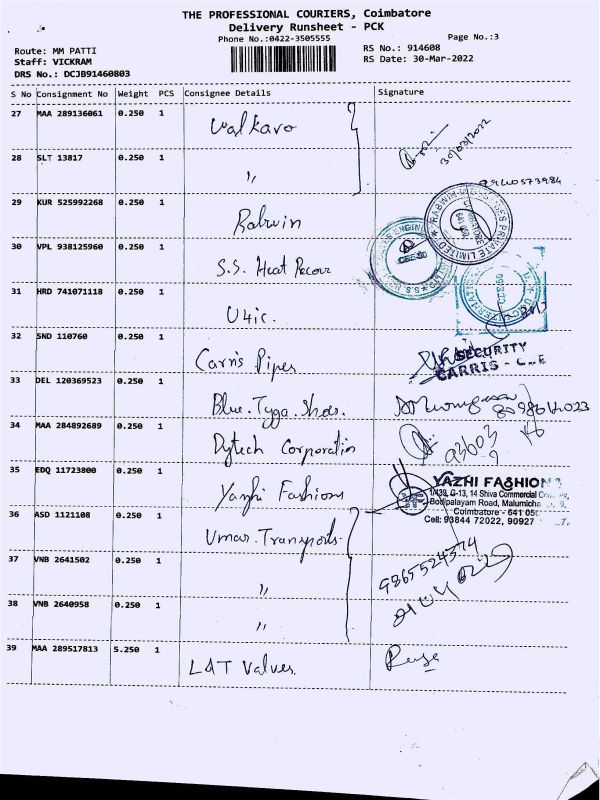 THE PROFESSIONAL COURIERS, Coimbatore
Delivery Runsheet - PCK
Phone No.:0422-3505551
Page No.:3
Route: MM PATTI
RS No.: 914608
Staff: VICKRAM
RS Date: 30-Mar-2022
DRS No.: DCJB91460803
S No Consignment No Weight PCS Consignee Details Signature
27 MAA 289136061 0.250 1 Walkaro
30/03/2022
28 SLT 13817 0.250 1 "
29 KUR 525992268 0.250 1 Rabwin
PRIVATE LIMITED
30 VPL 938125960 0.250 1 S.S. Heat Recour
31 HRD 741071118 0.250 1 U4ic.
32 SND 110760 0.250 1 Carris Pipes
SECURITY
CARRIS -
33 DEL 120369523 0.250 1 Blue. Tyga. Shos.
34 MAA 284892689 0.250 1 Dytech Corporation
35 EDQ 11723800 0.250 1 Yazhi Fashions
YAZHI FASHION
1/439, G-13, 14 Shiva Commercial
Bodipalayam Road, Malumicha
Coimbatore - 641 05
Cell: 93844 72022, 90927
36 ASD 1121108 0.250 1 Umar. Transports.
37 VNB 2641502 0.250 1 "
9865524374
38 VNB 2640958 0.250 1 "
39 MAA 289517813 5.250 1 L&T Valves.